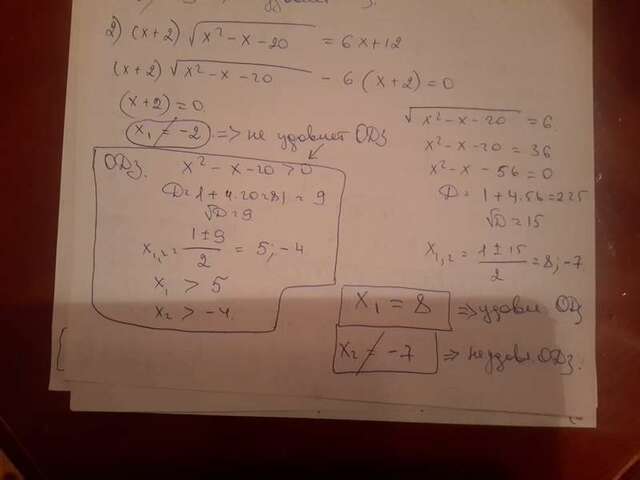 2) (x+2) √x² - x - 20 = 6x+12
(x+2) √x² - x - 20 - 6 (x+2) = 0
(x+2) = 0
x₁ = -2 => не удовлет ОДЗ
ОДЗ. x² - x - 20 > 0
D = 1 + 4·20 = 81 = 9
√D = 9
x₁,₂ = (1 ± 9)/2 = 5; -4
x₁ > 5
x₂ > -4.
√x² - x - 20 = 6.
x² - x - 20 = 36
x² - x - 56 = 0
D = 1 + 4·56 = 225
√D = 15
x₁,₂ = (1 ± 15)/2 = 8; -7
x₁ = 8 => удовл. ОДЗ
x₂ = -7 => не удовл ОДЗ.